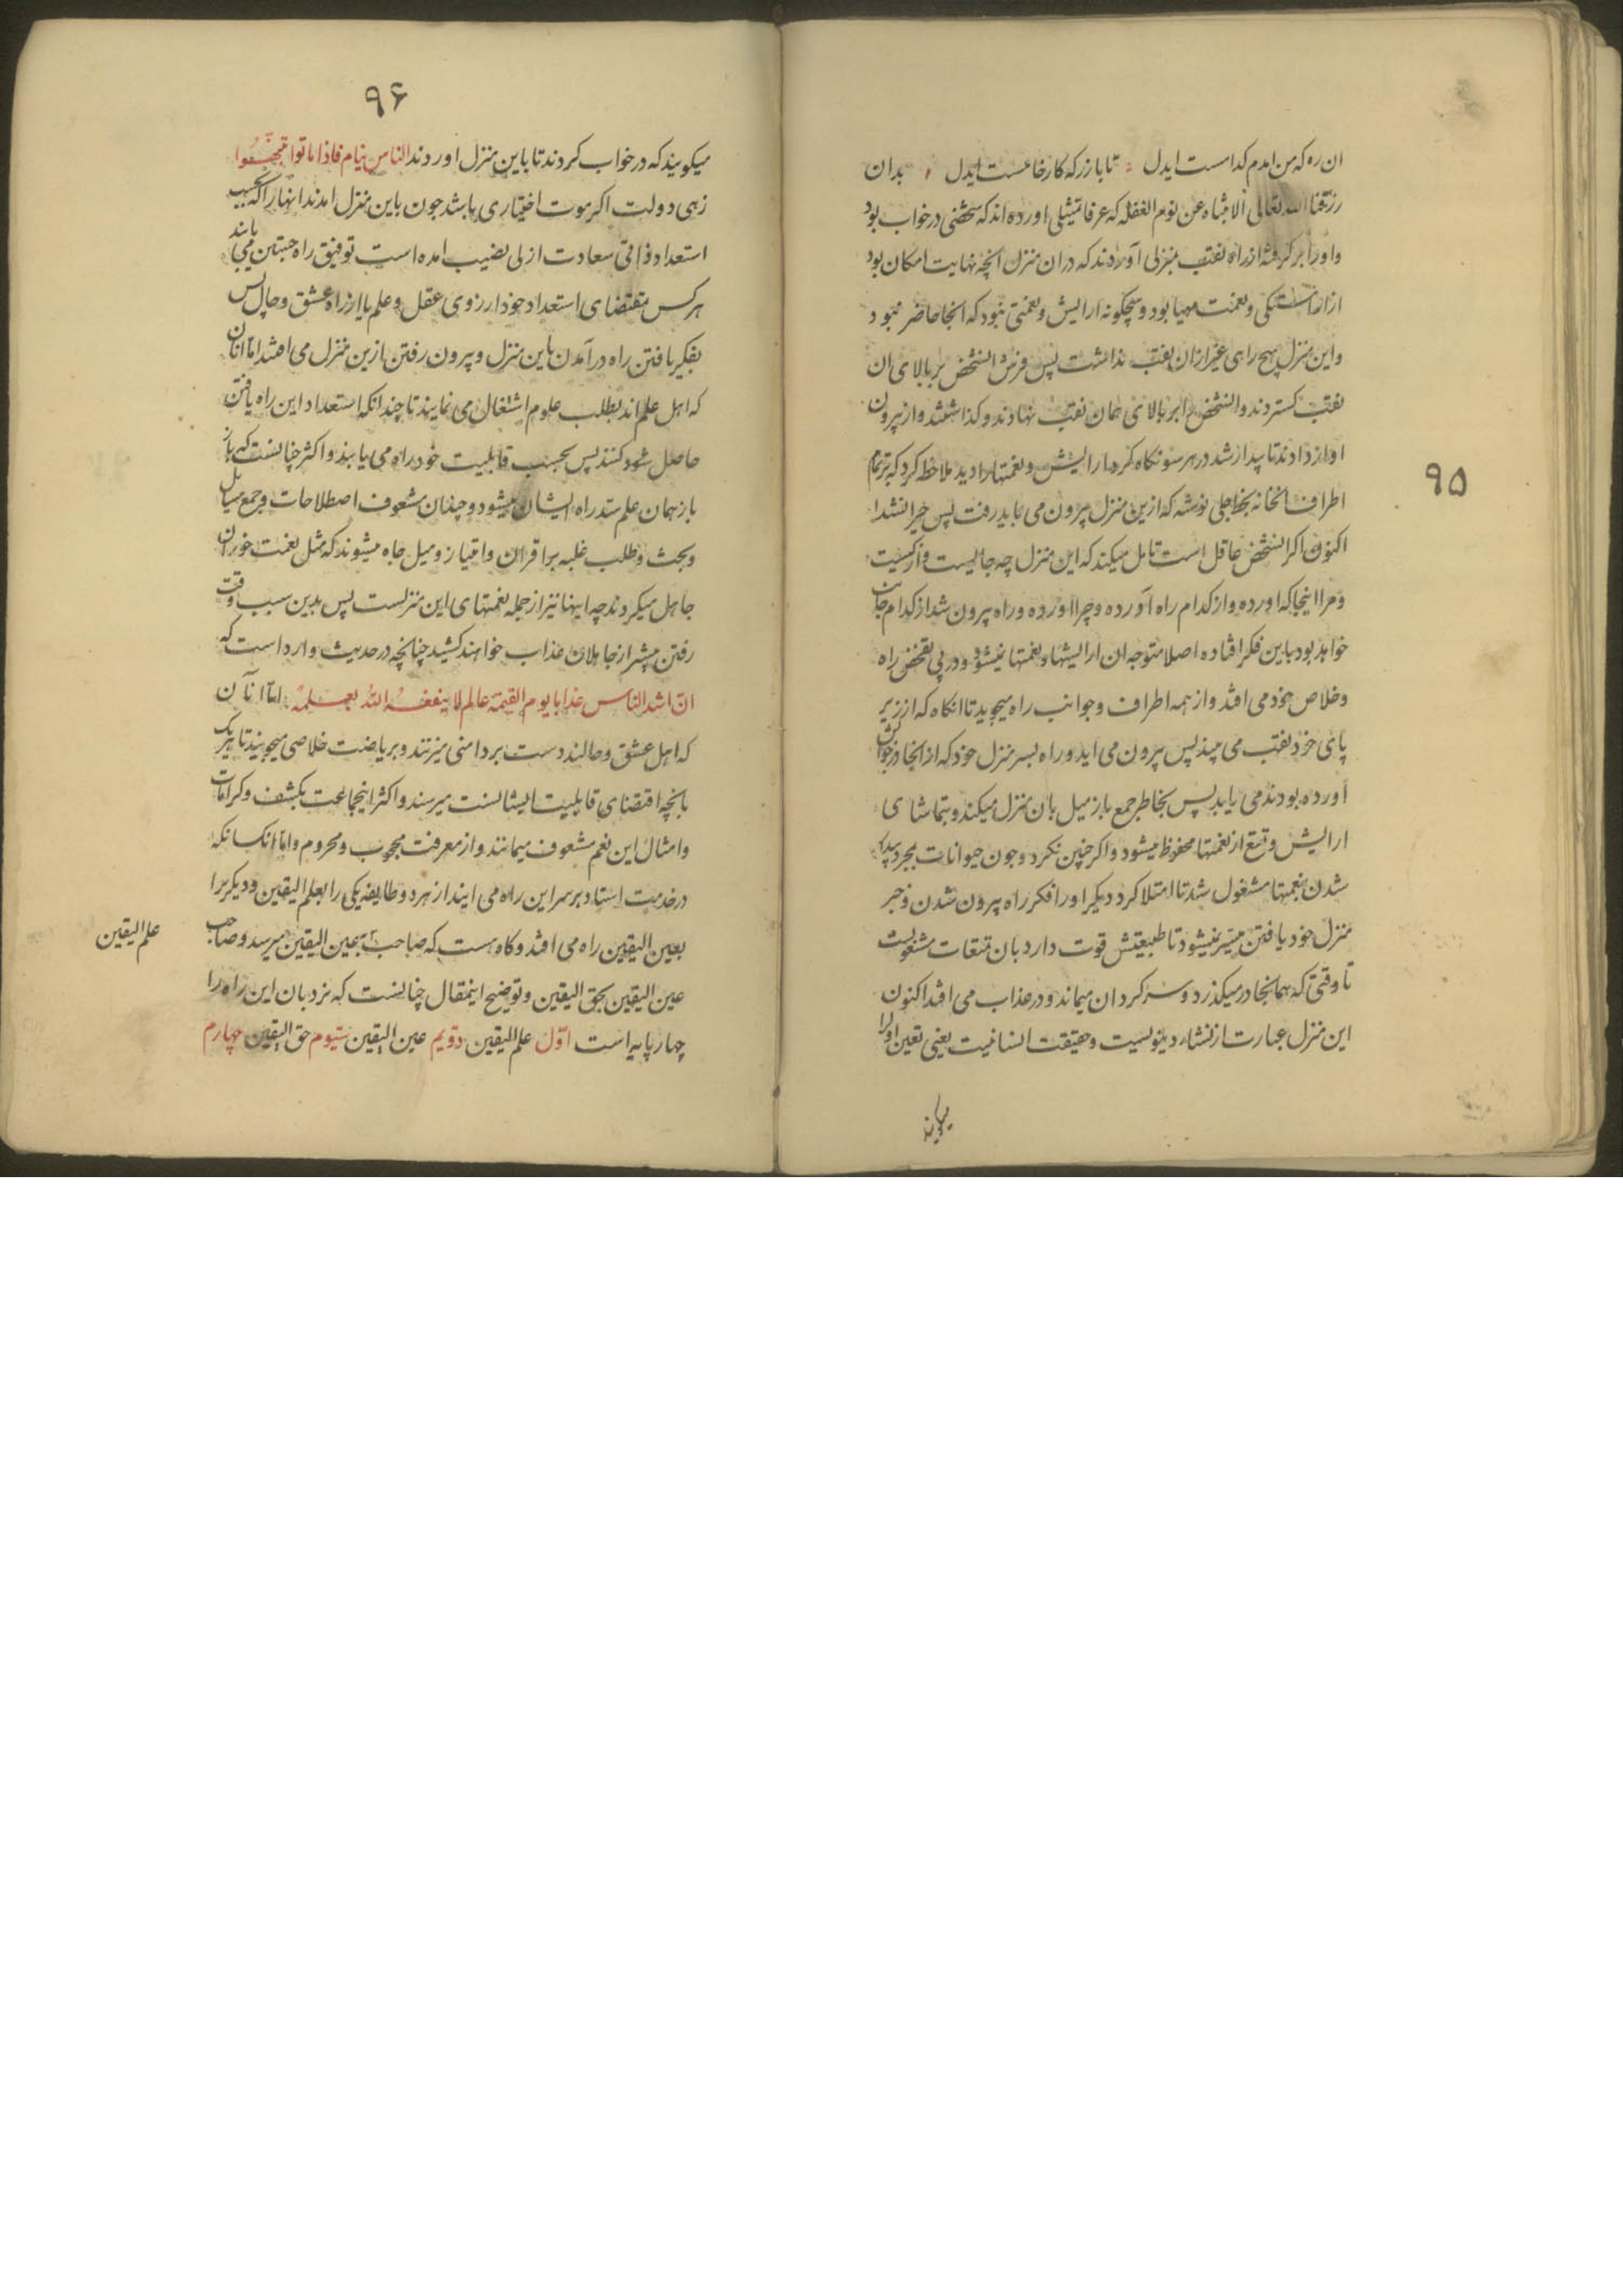 ۹۵
ان ره که من امدم کدامست ایدل تا باز رکه کار خامست ایدل بدان
رزقنا الله تعالی الانتباه عن نوم الغفله که عرفا تمثیلی اورده اند که شخصی در خواب بود
و او را بر کرفته از راه نقب بمنزلی آوردند که در ان منزل انچه نهایت امکان بود
از اراستکی و نعمت مهیا بود و هیچکونه ارایش و نعمتی نبود که انجا حاضر نبود
و این منزل هیچ راهی غیر از ان نقب نداشت پس فرش انشخص بر بالای ان
نقب کستردند و انشخص را بر بالای همان نقب نهادند و کذاشتند و از بیرون
اواز دادند تا بیدار شد در هر سو نکاه کرد ارایش و نعمتها را دید ملاحظه کرد که بر تمام
اطراف انخانه بخط جلی نوشته که ازین منزل بیرون می باید رفت پس حیران شد
اکنون اکر انشخص عاقل است تامل میکند که این منزل چه جائیست و از کیست
و مرا اینجا که اورده و از کدام راه آورده و چرا اورده و راه بیرون شد از کدام جانب
خواهد بود باین فکر افتاده اصلا متوجه ان ارایشها و نعمتها نمیشود و در پی تفحص راه
و خلاص خود می افتد و از همه اطراف و جوانب راه میجوید تا انکاه که از زیر
پای خود نقب می بیند پس بیرون می اید و راه بسر منزل خود که از انجا در خوابش
آورده بودند می یابد پس بخاطر جمع باز میل بان منزل میکند و بتماشای
ارایش و تمتع از نعمتها محظوظ میشود و اکر چنین نکرد و چون حیوانات بمجرد بیدار
شدن بنعمتها مشغول شد تا امتلا کرد دیکر او را فکر راه بیرون شدن و خبر
منزل خود یافتن میسر نمیشود تا طبیعتش قوت دارد بان تمتعات مشغولست
تا وقتی که همانجا در میکذرد و سرکردان میماند و در عذاب می افتد اکنون
این منزل عبارت از نشاء دنیویست و حقیقت انسانیت یعنی تعین او را
میکویند
۹۶
میکویند که در خواب کردند تا باین منزل اوردند الناس نیام فاذا ماتوا
زهی دولت اکر موت اختیاری باشد چون باین منزل امدند انها را که بحسب
استعداد ذاتی سعادت ازلی نصیب امده است توفیق راه جستن می یابند
هر کس بمقتضای استعداد خود از روی عقل و علم یا از راه عشق و حال پس
بفکر یافتن راه درآمدن باین منزل و بیرون رفتن ازین منزل می افتند اما آنان
که اهل علم اند بطلب علوم اشتغال می نمایند تا چندانکه استعداد این راه یافتن
حاصل کنند پس بحسب قابلیت خود راه می یابند و اکثر چنانست که باز
باز همان علم سد راه ایشان میشود و چندان مشعوف اصطلاحات و جمع مسائل
و بحث و طلب غلبه بر اقران و امتیاز و میل جاه میشوند که مثل نعمت خوران
جاهل میکردند چه اینها نیز از جمله نعمتهای این منزلست پس بدین سبب وقت
رفتن بیشتر از جاهلان عذاب خواهند کشید چنانچه در حدیث وارد است که
ان اشد الناس عذابا یوم القیمة عالم لا ینفعه الله بعلمه اما آنان
که اهل عشق و حالند دست بر دامنی میزنند و بریاضت خلاصی میجویند تا هر یک
بانچه اقتضای قابلیت ایشانست میرسند و اکثر اینجماعت بکشف و کرامات
و امثال این نعم مشعوف میمانند و از معرفت محجوب و محروم و اما انکسانکه
در خدمت استاد بر سر این راه می ایند از هر دو طایفه یکی را بعلم الیقین و دیکر را
بعین الیقین راه می افتد و کاه هست که صاحب بعین الیقین میرسد و صاحب
علم الیقین
عین الیقین بحق الیقین و توضیح اینمقال چنانست که نردبان این راه را
چهار پایه است اوّل علم الیقین دویم عین الیقین سیوم حق الیقین چهارم